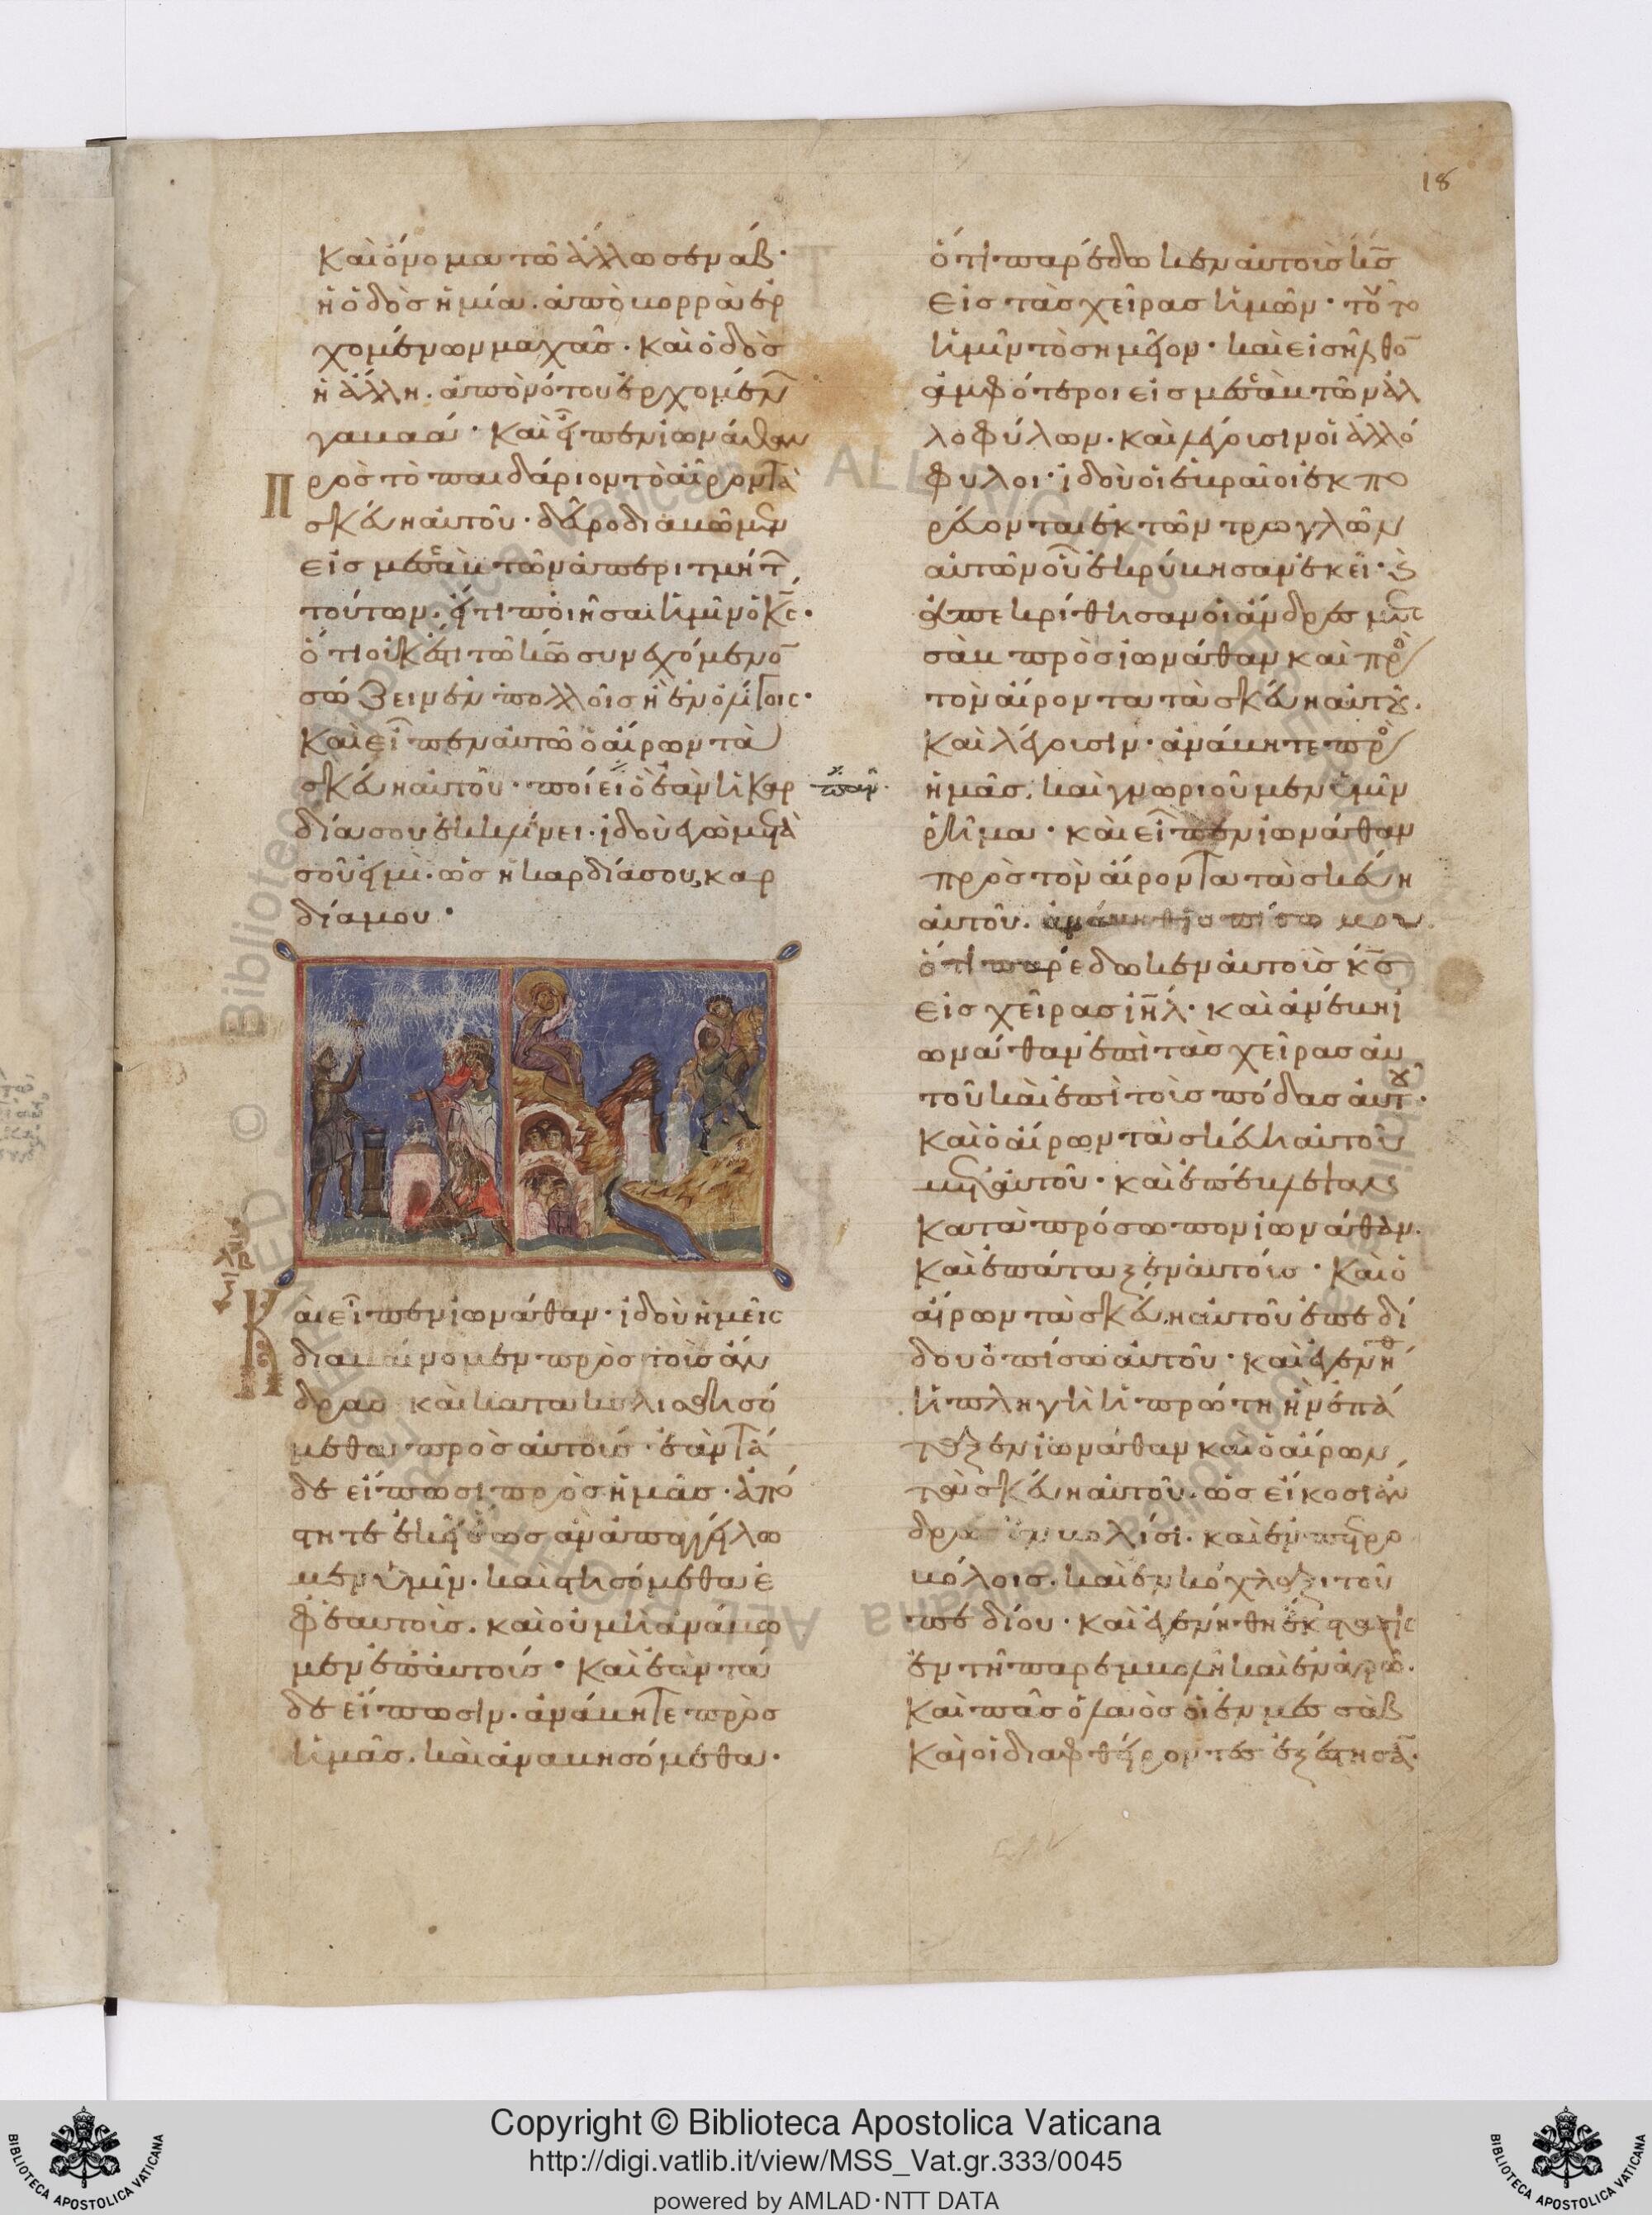 18
Καὶ ὄνομα τῶ ἄλλω σεναβ·
ἡ ὁδὸς ἡ μία. ἀπὸ βορρὰ ἐρ
χομένων μαχάς. Καὶ ὁδὸς
ἡ ἄλλη. ἀπὸ νότου ἐρχομέν
γαβαά· Καὶ εἶπεν ἰωνάθαν
Πρὸς τὸ παιδάριον τὸ αἶρον τὰ
σκεύη αὐτοῦ· δεῦρο διαβῶμεν
εἰς μεσσὰβ τῶν ἀπεριτμήτ
τούτων. εἴ τι ποιῆσαι ἡμῖν ὁ κς·
ὅτι οὐκ ἔστι τῶ κω συνεχόμενο
σώζειν ἐν πολλοῖς ἢ ἐν ὀλίγοις·
Καὶ εἶπεν αὐτῶ ὁ αἴρων τὰ
σκεύη αὐτοῦ· ποίει ὃ ἐὰν ἡ καρ
πᾶν
δία σου ἐκκλίνει. ἰδοὺ ἐγὼ μετὰ
σοῦ εἰμὶ. ὡς ἡ καρδία σου καρ
δία μου·
Καὶ εἶπεν ἰωνάθαν· ἰδοὺ ἡμεῖς
διαβαίνομεν πρὸς τοὺς ἄν
δρας καὶ κατακυλισθησό
μεθα πρὸς αὐτούς· ἐὰν τά
δε εἴπωσι πρὸς ἡμᾶς· ἀπό
στητε ἐκεῖ ἕως ἂν ἀπαγγείλω
μεν ὑμῖν. καὶ στησόμεθα ἐ
φ' ἑαυτοῖς. καὶ οὐ μὴ ἀναβῶ
μεν ἐπ' αὐτούς· Καὶ ἐὰν τά
δε εἴπωσιν. ἀνάβητε πρὸς
ἡμᾶς. καὶ ἀναβησόμεθα.
ὅτι παρέδωκεν αὐτοὺς κς
εἰς τὰς χεῖρας ἡμῶν· τοῦτο
ἡμῖν τὸ σημεῖον· καὶ εἰσῆλθο
ἀμφότεροι εἰς μεσσὰβ τῶν ἀλ
λοφύλων. καὶ λέγουσιν οἱ ἀλλό
φυλοι· ἰδοὺ οἱ ἑβραῖοι ἐκπο
ρεύονται ἐκ τῶν τρωγλῶν
αὐτῶν οὗ ἐκρύβησαν ἐκεῖ· καὶ
ἀπεκρίθησαν οἱ ἄνδρες μεσ
σὰβ πρὸς ἰωνάθαν καὶ πρὸς
τὸν αἴροντα τὰ σκεύη αὐτοῦ.
Καὶ λέγουσιν· ἀνάβητε πρὸς
ἡμᾶς. καὶ γνωριοῦμεν ὑμῖν
ῥῆμα· καὶ εἶπεν ἰωνάθαν
πρὸς τὸν αἴροντα τὰ σκεύη
αὐτοῦ. ἀνάβηθι ὀπίσω μου
ὅτι παρέδωκεν αὐτοὺς κς
εἰς χεῖρας ιηλ· καὶ ἀνέβη ἰ
ωνάθαν ἐπὶ τὰς χεῖρας αὐ
τοῦ καὶ ἐπὶ τοὺς πόδας αὐτοῦ·
Καὶ ὁ αἴρων τὰ σκεύη αὐτοῦ
μετ' αὐτοῦ· καὶ ἐπέβλεψαν
κατὰ πρόσωπον ἰωνάθαν.
Καὶ ἐπάταξεν αὐτούς· Καὶ ὁ
αἴρων τὰ σκεύη αὐτοῦ ἐπεδί
δου ὀπίσω αὐτοῦ· καὶ ἐγενήθ
ἡ πληγὴ ἡ πρώτη ἣν ἐπά
ταξεν ἰωνάθαν καὶ ὁ αἴρων
τὰ σκεύη αὐτοῦ. ὡς εἴκοσι ἄν
δρες ἐν βολίσι. καὶ ἐν πετρο
βόλοις. καὶ ἐν κόχλαξι τοῦ
πεδίου· καὶ ἐγενήθη ἔκστασις
ἐν τῆ παρεμβολῆ καὶ ἐν ἀγρῶ.
Καὶ πᾶς ὁ λαὸς οἱ ἐν μεσσὰβ
Καὶ οἱ διαφθείροντες ἐξέστησα.
Copyright © Biblioteca Apostolica Vaticana
http://digi.vatlib.it/view/MSS_Vat.gr.333/0045
powered by AMLAD·NTT DATA
BIBLIOTECA APOSTOLICA VATICANA
BIBLIOTECA APOSTOLICA VATICANA